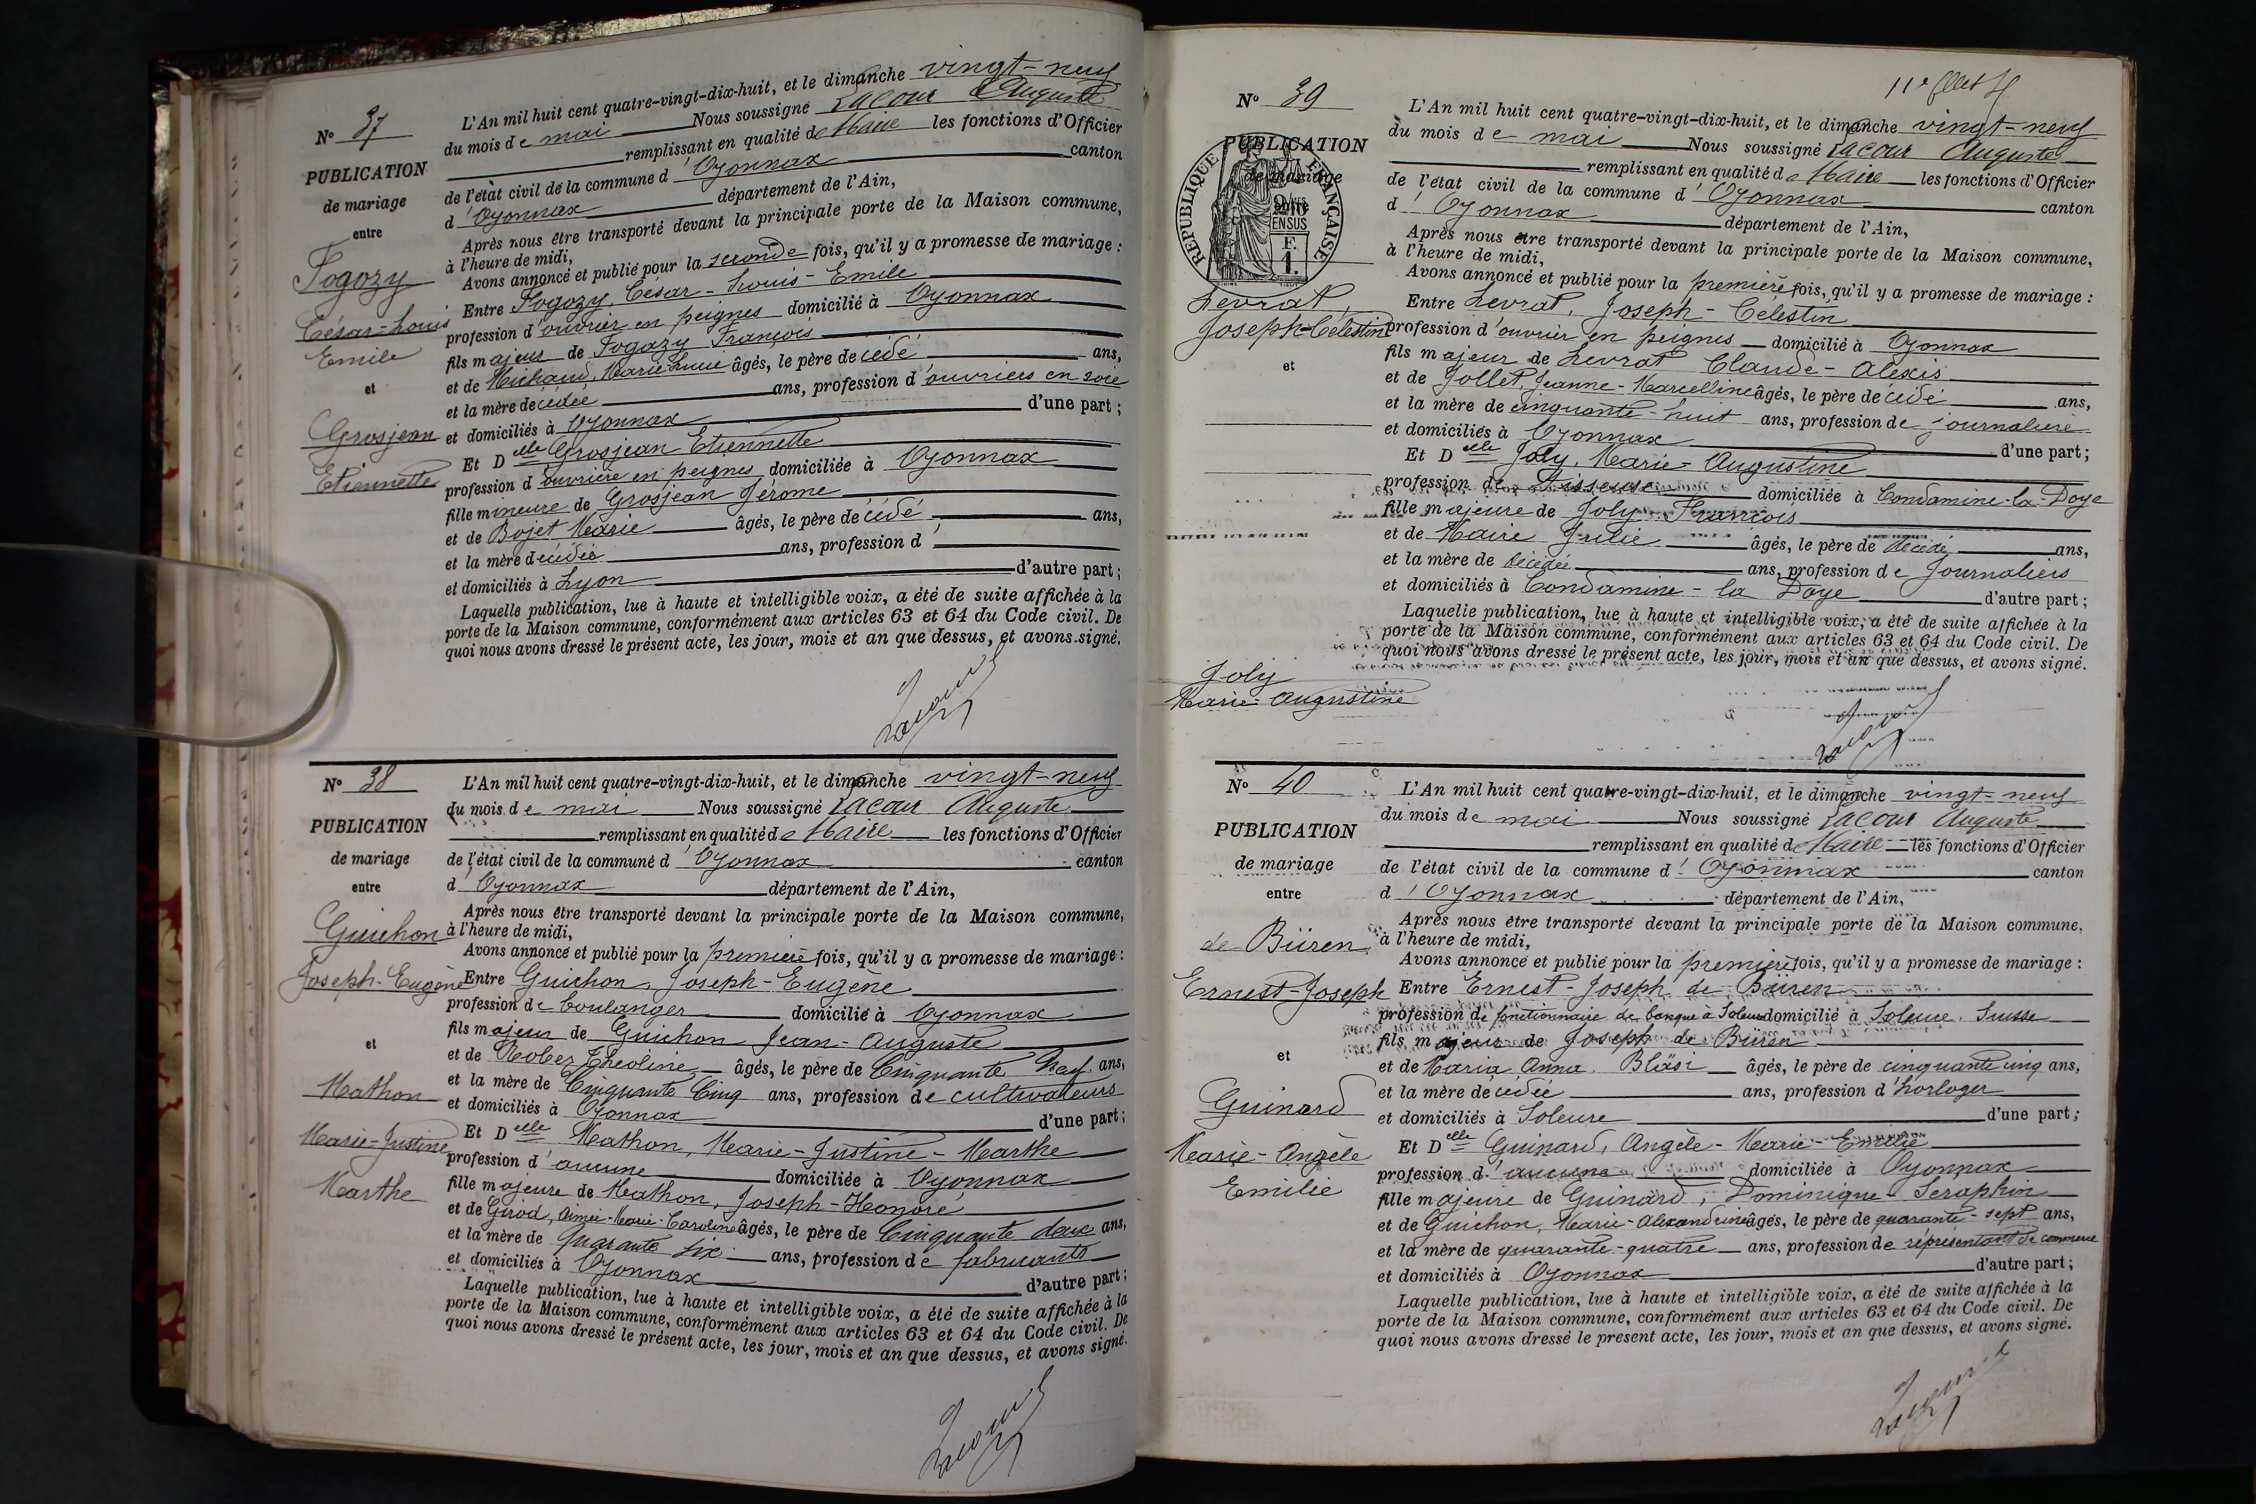 N° 37
PUBLICATION
de mariage
entre
Fogozy
César-Louis
Emile
et
Grosjean
Etiennette
L'An mil huit cent quatre-vingt-dix-huit, et le dimanche vingt-neuf
du mois de mai Nous soussigné Lacour Auguste
remplissant en qualité de Maire les fonctions d'Officier
de l'état civil de la commune d'Oyonnax canton
d'Oyonnax département de l'Ain,
Après nous être transporté devant la principale porte de la Maison commune,
à l'heure de midi,
Avons annoncé et publié pour la seconde fois, qu'il y a promesse de mariage :
Entre Fogozy, César-Louis-Emile
profession d'ouvrier en peignes domicilié à Oyonnax
fils majeur de Fogozy François
et de Michaud, Marie-Louise âgés, le père de cédé ans,
et la mère decédée ans, profession d'ouvriers en soie
et domiciliés à Oyonnax d'une part ;
Et Delle Grosjean Etiennette
profession d'ouvrière en peignes domiciliée à Oyonnax
fille mineure de Grosjean Jérome
et de Bojet Marie âgés, le père de cédé ans,
et la mère decédée ans, profession d
et domiciliés à Lyon d'autre part ;
Laquelle publication, lue à haute et intelligible voix, a été de suite affichée à la
porte de la Maison commune, conformément aux articles 63 et 64 du Code civil. De
quoi nous avons dressé le présent acte, les jour, mois et an que dessus, et avons signé.
Lacour
N° 38
PUBLICATION
de mariage
entre
Guichon
Joseph-Eugène
et
Mathon
Marie-Justine
Marthe
L'An mil huit cent quatre-vingt-dix-huit, et le dimanche vingt-neuf
du mois de mai Nous soussigné Lacour Auguste
remplissant en qualité de Maire les fonctions d'Officier
de l'état civil de la commune d'Oyonnax canton
d'Oyonnax département de l'Ain,
Après nous être transporté devant la principale porte de la Maison commune,
à l'heure de midi,
Avons annoncé et publié pour la première fois, qu'il y a promesse de mariage :
Entre Guichon, Joseph-Eugène
profession de boulanger domicilié à Oyonnax
fils majeur de Guichon Jean-Auguste
et de Robez Théoline âgés, le père de Cinquante Neuf ans,
et la mère de Cinquante Cinq ans, profession de cultivateurs
et domiciliés à Oyonnax d'une part ;
Et Delle Mathon, Marie-Justine-Marthe
profession d'aucune domiciliée à Oyonnax
fille majeure de Mathon, Joseph-Honoré
et de Girod, Aimée-Marie-Caroline âgés, le père de Cinquante deux ans,
et la mère de Quarante Six ans, profession de fabricants
et domiciliés à Oyonnax d'autre part ;
Laquelle publication, lue à haute et intelligible voix, a été de suite affichée à la
porte de la Maison commune, conformément aux articles 63 et 64 du Code civil. De
quoi nous avons dressé le présent acte, les jour, mois et an que dessus, et avons signé.
Lacour
N° 39
PUBLICATION
de mariage
entre
REPUBLIQUE FRANÇAISE
2/10 EN SUS
F.
1.
Levrat,
Joseph-Célestin
et
Joly
Marie Augustine
L'An mil huit cent quatre-vingt-dix-huit, et le dimanche vingt-neuf
du mois de mai Nous soussigné Lacour Auguste
remplissant en qualité de Maire les fonctions d'Officier
de l'état civil de la commune d'Oyonnax canton
d'Oyonnax département de l'Ain,
Après nous être transporté devant la principale porte de la Maison commune,
à l'heure de midi,
Avons annoncé et publié pour la première fois, qu'il y a promesse de mariage :
Entre Levrat, Joseph-Célestin
profession d'ouvrier en peignes domicilié à Oyonnax
fils majeur de Levrat Claude-Alexis
et de Jollet, Jeanne-Marcelline âgés, le père de cédé ans,
et la mère de cinquante-huit ans, profession de journalière
et domiciliés à Oyonnax d'une part ;
Et Delle Joly, Marie-Augustine
profession de Tisseuse domiciliée à Condamine-la-Doye
fille majeure de Joly François
et de Maire Julie âgés, le père de décédé ans,
et la mère de décédée ans, profession de Journaliers
et domiciliés à Condamine-la Doye d'autre part ;
Laquelle publication, lue à haute et intelligible voix, a été de suite affichée à la
porte de la Maison commune, conformément aux articles 63 et 64 du Code civil. De
quoi nous avons dressé le présent acte, les jour, mois et an que dessus, et avons signé.
Lacour
N° 40
PUBLICATION
de mariage
entre
de Büren
Ernest-Joseph
et
Guinard
Marie-Angèle
Emilie
L'An mil huit cent quatre-vingt-dix-huit, et le dimanche vingt-neuf
du mois de mai Nous soussigné Lacour Auguste
remplissant en qualité de Maire les fonctions d'Officier
de l'état civil de la commune d'Oyonnax canton
d'Oyonnax département de l'Ain,
Après nous être transporté devant la principale porte de la Maison commune,
à l'heure de midi,
Avons annoncé et publié pour la première fois, qu'il y a promesse de mariage :
Entre Ernest-Joseph de Büren
profession de fonctionnaire de banque à Soleure domicilié à Soleure, Suisse
fils majeur de Joseph de Büren
et de Maria Anna Bläsi âgés, le père de cinquante cinq ans,
et la mère décédée ans, profession d'horloger
et domiciliés à Soleure d'une part ;
Et Delle Guinard, Angèle-Marie-Emilie
profession d'aucune domiciliée à Oyonnax
fille majeure de Guinard, Dominique-Séraphin
et de Guichon, Marie-Alexandrine âgés, le père de quarante-sept ans,
et la mère de quarante-quatre ans, profession de représentant de commerce
et domiciliés à Oyonnax d'autre part ;
Laquelle publication, lue à haute et intelligible voix, a été de suite affichée à la
porte de la Maison commune, conformément aux articles 63 et 64 du Code civil. De
quoi nous avons dressé le présent acte, les jour, mois et an que dessus, et avons signé.
Lacour